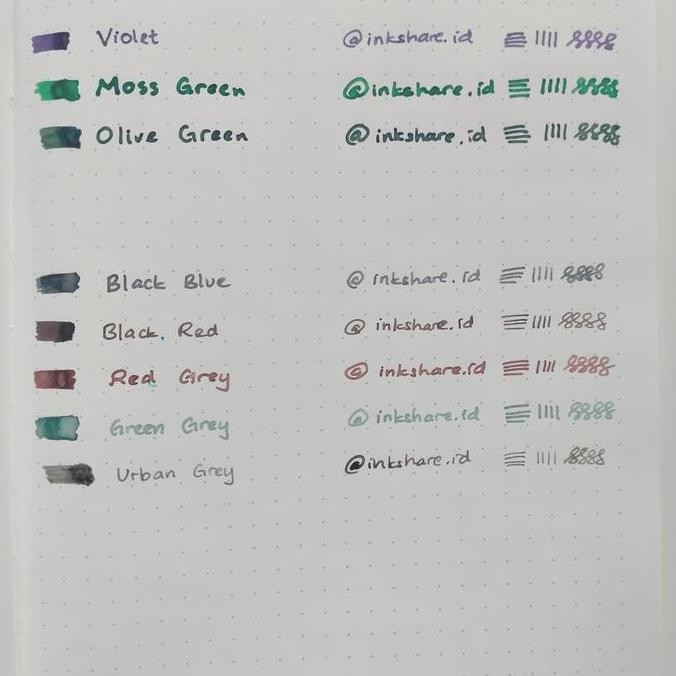 Violet @inkshare.id
Moss Green @inkshare.id
Olive Green @inkshare.id
Black Blue @inkshare.id
Black Red @inkshare.id
Red Grey @inkshare.id
Green Grey @inkshare.id
Urban Grey @inkshare.id